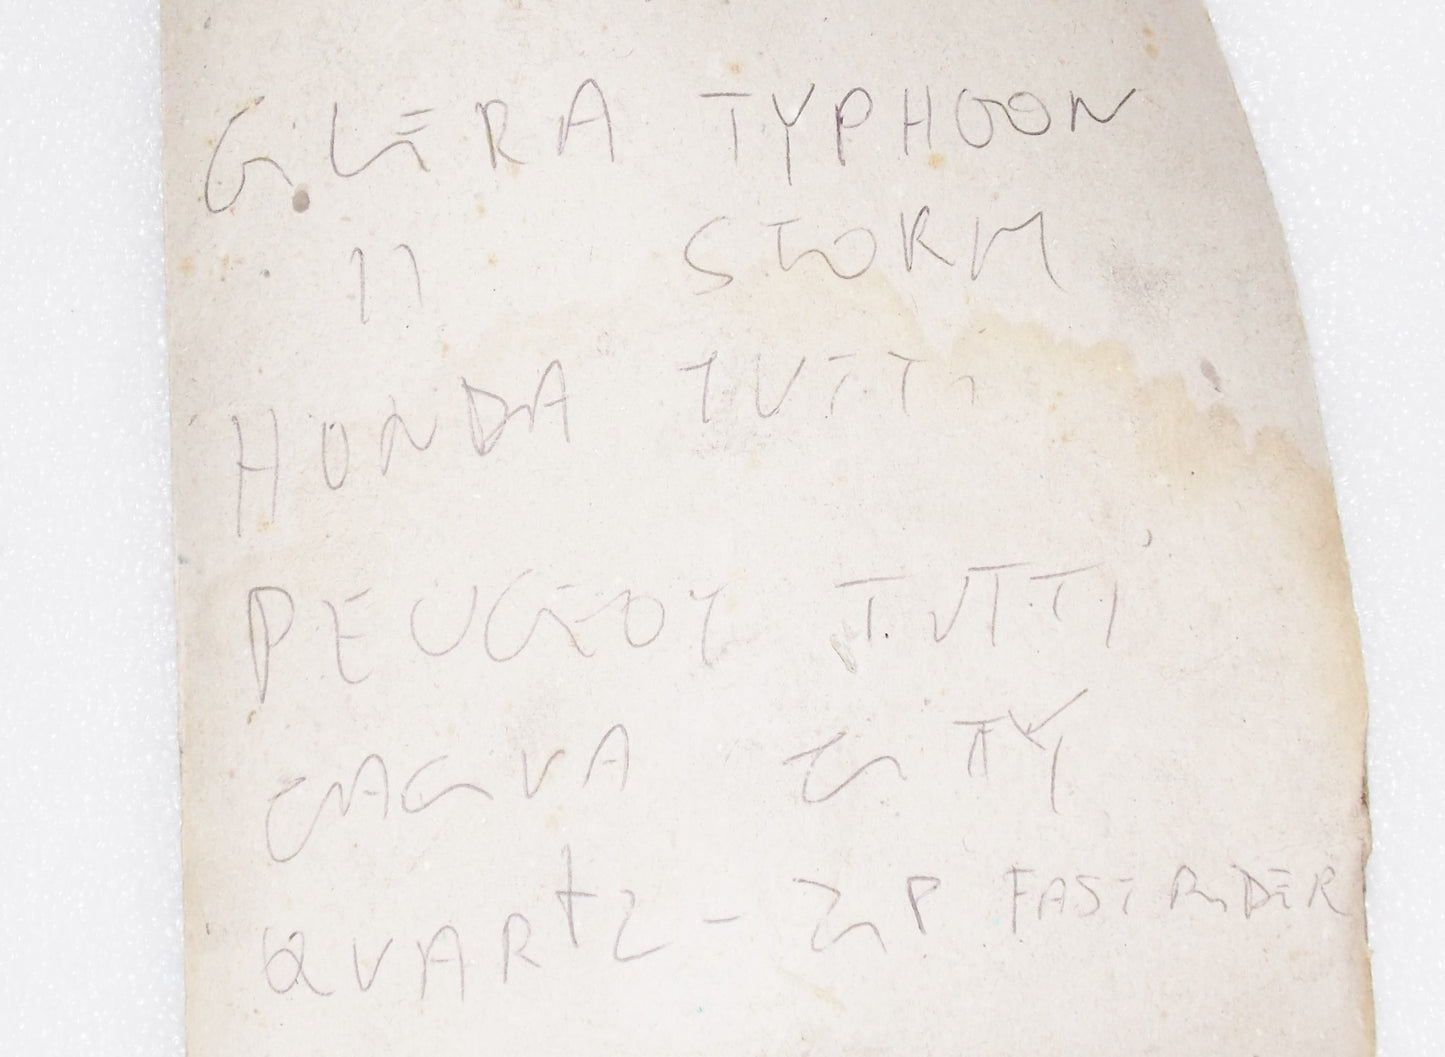 GILERA TYPHOON
" STORM
HONDA TUTTI
PEUGEOT TUTTI
CAGIVA CITY
QUARTZ - ZIP FAST RIDER